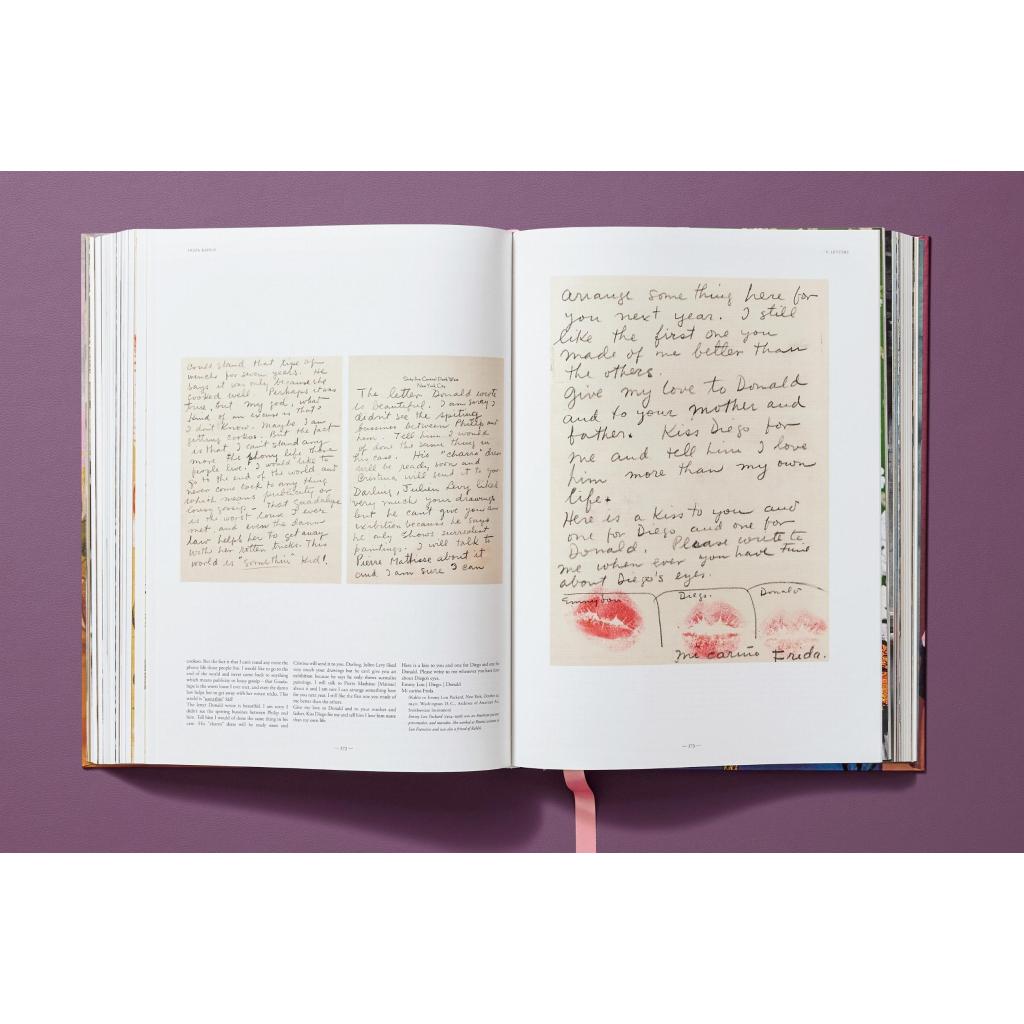 FRIDA KAHLO
could stand that type of
wench for seven years. He
says it was only because she
cooked well. Perhaps it was
true, but my god, what
kind of an excuse is that?
I don't know. Maybe I am
getting cookoo. But the fact
is that I can't stand any
more the phony life those
people live. I would like to
go to the end of the world and
never come back to any thing
which means publicity or
lousy gossip – That Guadalupe
is the worst louse I ever
met and even the damn
law helps her to get away
with her rotten tricks. This
world is "somethin" kid!
Sixty-five Central Park West
New York City
The letter Donald wrote
is beautiful. I am sorry I
didn't see the spiting
bussines between Philip and
him. Tell him I would
of done the same thing in
his case. His "charro" dress
will be ready soon and
Cristina will send it to you
Darling, Julien Levy liked
very much your drawings
but he can't give you an
exibition because he says
he only shows surrealist
paintings. I will talk to
Pierre Mathisse about it
and I am sure I can
cookoo. But the fact is that I can't stand any more the
phony life those people live. I would like to go to the
end of the world and never come back to anything
which means publicity or lousy gossip – that Guada-
lupe is the worst louse I ever met, and even the damn
law helps her to get away with her rotten tricks. This
world is "somethin" kid!
The letter Donald wrote is beautiful. I am sorry I
didn't see the spitting business between Philip and
him. Tell him I would of done the same thing in his
case. His "charro" dress will be ready soon and
Cristina will send it to you. Darling, Julien Levy liked
very much your drawings but he can't give you an
exhibition because he says he only shows surrealist
paintings. I will talk to Pierre Mathisse [Matisse]
about it and I am sure I can arrange something here
for you next year. I still like the first one you made of
me better than the others.
Give my love to Donald and to your mother and
father. Kiss Diego for me and tell him I love him more
than my own life.
Here is a kiss to you and one for Diego and one for
Donald. Please write to me whenever you have time
about Diego's eyes.
Emmy Lou | Diego | Donald
Mi cariño Frida
(Kahlo to Emmy Lou Packard, New York, October
Washington D.C., Archives of American Art,
Smithsonian Institution)
Emmy Lou Packard (1914–1998) was an American painter,
printmaker, and muralist. She worked as Rivera's assistant in
San Francisco and was also a friend of Kahlo.
— 273 —
arrange some thing here for
you next year. I still
like the first one you
made of me better than
the others.
Give my love to Donald
and to your mother and
father. Kiss Diego for
me and tell him I love
him more than my own
life.
Here is a kiss to you and
one for Diego and one for
Donald. Please write to
me when ever you have time
about Diego's eyes.
Emmylou. Diego. Donald
Mi cariño Frida.